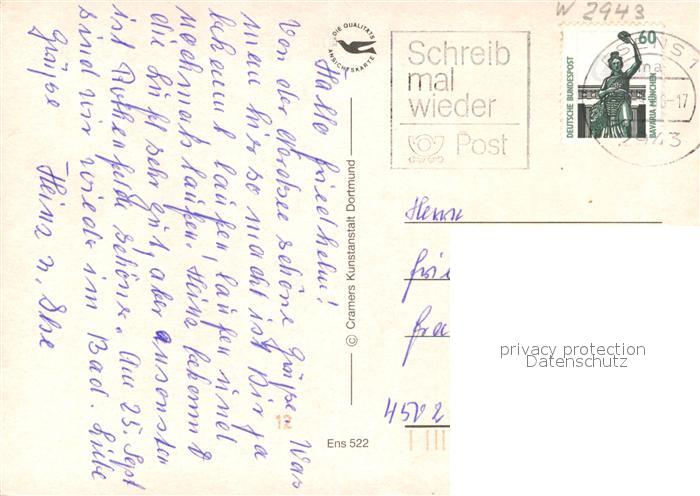 Hallo Friedhelm!
Von der Nordsee schöne Grüße. Was
man hier so macht ist Dir ja
bekannt laufen, laufen und
nochmals laufen. Heinz bekommt
die Luft sehr gut, aber ansonsten
ist Rothenfelde schöner. Am 25. Sept
sind wir wieder im Bad. Liebe
Grüße Heinz u. Ilse
DIE QUALITÄTS
ANSICHTSKARTE
© Cramers Kunstanstalt Dortmund
12
Ens 522
W 2943
Schreib
mal
wieder
Post
60
DEUTSCHE BUNDESPOST
BAVARIA MÜNCHEN
ESENS 1
-17
2943
Herrn
4502
privacy protection
Datenschutz